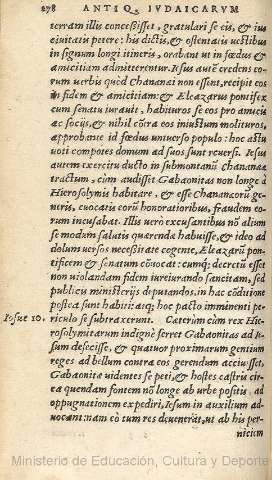 278 ANTIQ. IVDAICARVM
terram illis concessisset, gratulari se eis, & ius
ciuitatis petere: his dictis, & ostentatis uestibus
in signum longi itineris, orabant ut in fœdus &
amicitiam admitterentur. Iesus autē credens eo-
rum uerbis quòd Chananæi non essent, recipit eos
in fidem & amicitiam: & Eleazarus pontifex
cum senatu iurauit, habituros se eos pro amicis
ac socijs, & nihil cōtra eos iniustum molituros,
approbante id fœdus uniuerso populo: hoc actu
uoti compotes domum ad suos sunt reuersi. Iesus
autem exercitu ducto in submontanū Chananææ
tractum, cum audisset Gabaonitas non longe à
Hierosolymis habitare, & esse Chanæorū ge-
neris, euocatis eorū honoratioribus, fraudem eo-
rum incusabat. Illis uerò excusantibus nō alium
se modum salutis quærendæ habuisse, & ideo ad
dolum uersos necessitate cogente, Eleazarū pon-
tificem & senatum cōuocat: cumq; decretū esset
non uiolandam fidem iureiurando sancitam, sed
publicis ministerijs deputandos, in hac cōditione
postea sunt habiti: atq; hoc pacto imminenti pe-
Iosue 10. riculo se subtraxerunt. Cæterùm cùm rex Hie-
rosolymitarum indignè ferret Gabaonitas ad Ie-
sum defecisse, & quatuor proximarum gentium
reges ad bellum contra eos gerendum acciuisset,
Gabaonitæ uidentes se peti, & hostes castris cir-
ca quendam fontem nō longe ab urbe positis ad
oppugnationem expediri, Iesum in auxilium ad-
uocant: nam eò tum res deuenerat, ut ab his per-
niciem
Ministerio de Educación, Cultura y Deporte